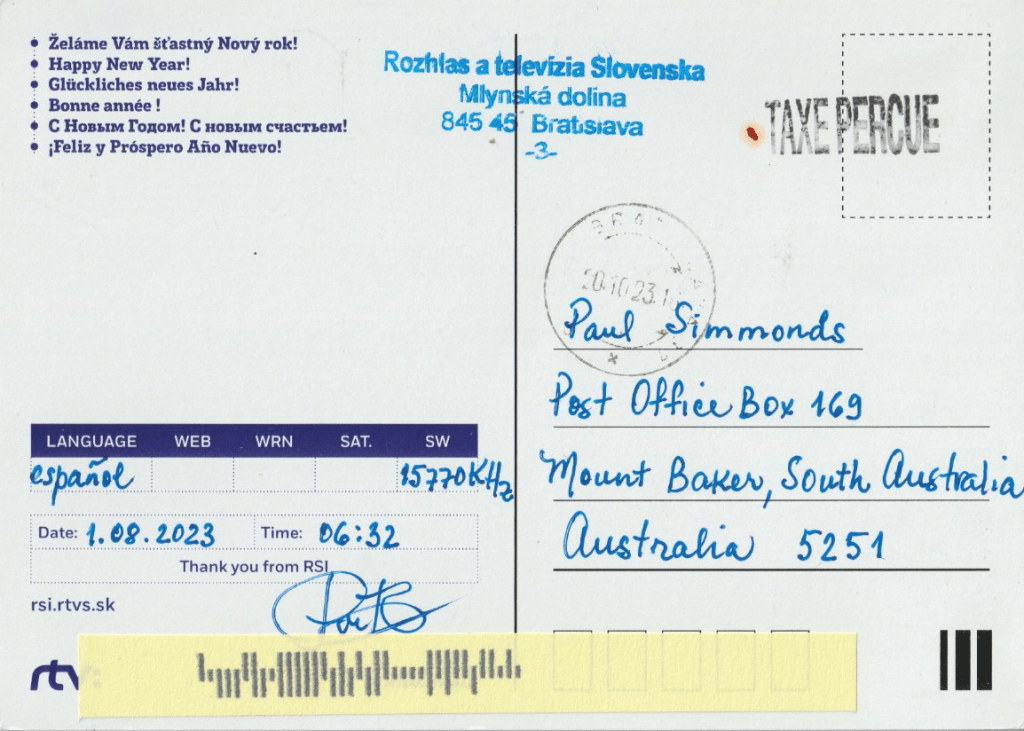 Želáme Vám šťastný Nový rok!
Happy New Year!
Glückliches neues Jahr!
Bonne année !
С Новым Годом! С новым счастьем!
¡Feliz y Próspero Año Nuevo!
Rozhlas a televízia Slovenska
Mlynská dolina
845 45 Bratislava
-3-
TAXE PERCUE
20.10.23.
Paul Simmonds
Post Office Box 169
Mount Baker, South Australia
Australia 5251
LANGUAGE WEB WRN SAT. SW
español 15770KHz
Date: 1.08.2023 Time: 06:32
Thank you from RSI
rsi.rtvs.sk